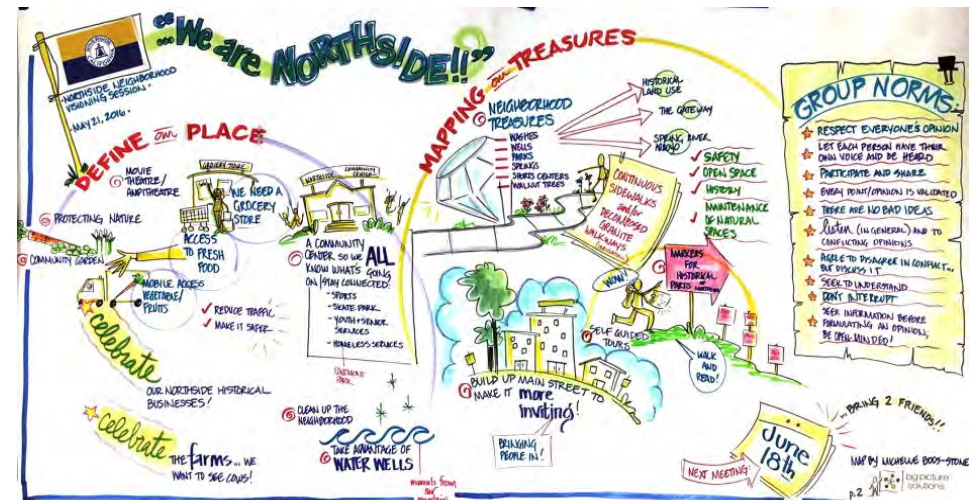 "...We are NORTHSIDE!!"
RIVERSIDE
CALIFORNIA
-NORTHSIDE NEIGHBORHOOD
VISIONING SESSION-
-MAY 21, 2016-
DEFINE our PLACE
MOVIE
THEATRE/
AMPITHEATRE
GROCERY STORE
WE NEED A
GROCERY
STORE
PROTECTING NATURE
COMMUNITY GARDEN
ACCESS
TO FRESH
FOOD
MOBILE ACCESS
VEGETABLE/
FRUITS
✓ REDUCE TRAFFIC
✓ MAKE IT SAFER
NORTHSIDE COMMUNITY
CENTER
A COMMUNITY
CENTER SO WE ALL
KNOW WHAT'S GOING
ON | STAY CONNECTED!
- SPORTS
- SKATE PARK
- YOUTH + SENIOR
SERVICES
- HOMELESS SERVICES
PARK
celebrate
OUR NORTHSIDE HISTORICAL
BUSINESSES!
celebrate
THE farms... WE
WANT TO SEE COWS!
CLEAN UP THE
NEIGHBORHOOD
TAKE ADVANTAGE OF
WATER WELLS
minerals from
MAPPING our TREASURES
NEIGHBORHOOD
TREASURES
WASHES
WELLS
PARKS
SPRINGS
SPORTS CENTERS
WALNUT TREES
HISTORICAL
LAND USE
THE GATEWAY
SPRING, RIVER
ARROYO
CONTINUOUS
SIDEWALKS
and/or
DECOMPOSED
GRANITE
WALKWAYS
✓ SAFETY
✓ OPEN SPACE
✓ HISTORY
✓ MAINTENANCE
OF NATURAL
SPACES
MARKERS
FOR
HISTORICAL
PARTS of NORTHSIDE
WOW!
SELF GUIDED
TOURS
WALK
AND
READ!
BUILD UP MAIN STREET TO
MAKE IT more
inviting!
BRINGING
PEOPLE IN!
GROUP NORMS:
RESPECT EVERYONE'S OPINION
LET EACH PERSON HAVE THEIR
OWN VOICE AND BE HEARD
PARTICIPATE AND SHARE
EVERY POINT/OPINION IS VALIDATED
THERE ARE NO BAD IDEAS
listen (IN GENERAL) AND TO
CONFLICTING OPINIONS
AGREE TO DISAGREE IN CONFLICT...
BUT DISCUSS IT
SEEK TO UNDERSTAND
DON'T INTERRUPT
SEEK INFORMATION BEFORE
FORMULATING AN OPINION,
BE OPEN-MINDED!
NEXT MEETING:
June
18th
...BRING 2 FRIENDS!!
MAP BY MICHELLE BOOS-STONE
p.2
bigpicture
solutions